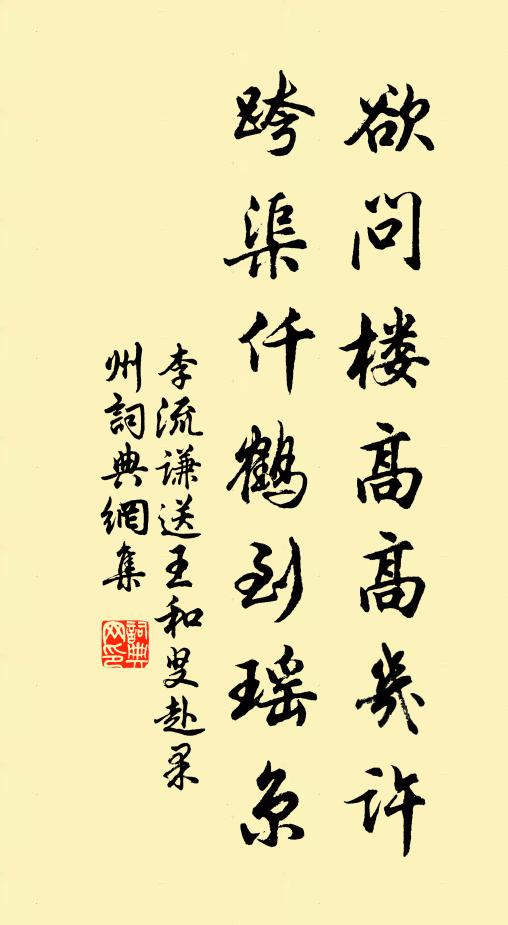 欲问楼高高几许
跨渠仟鹤到瑶京
李流谦送王和叟赴果
州詞典網集
詞典
网印